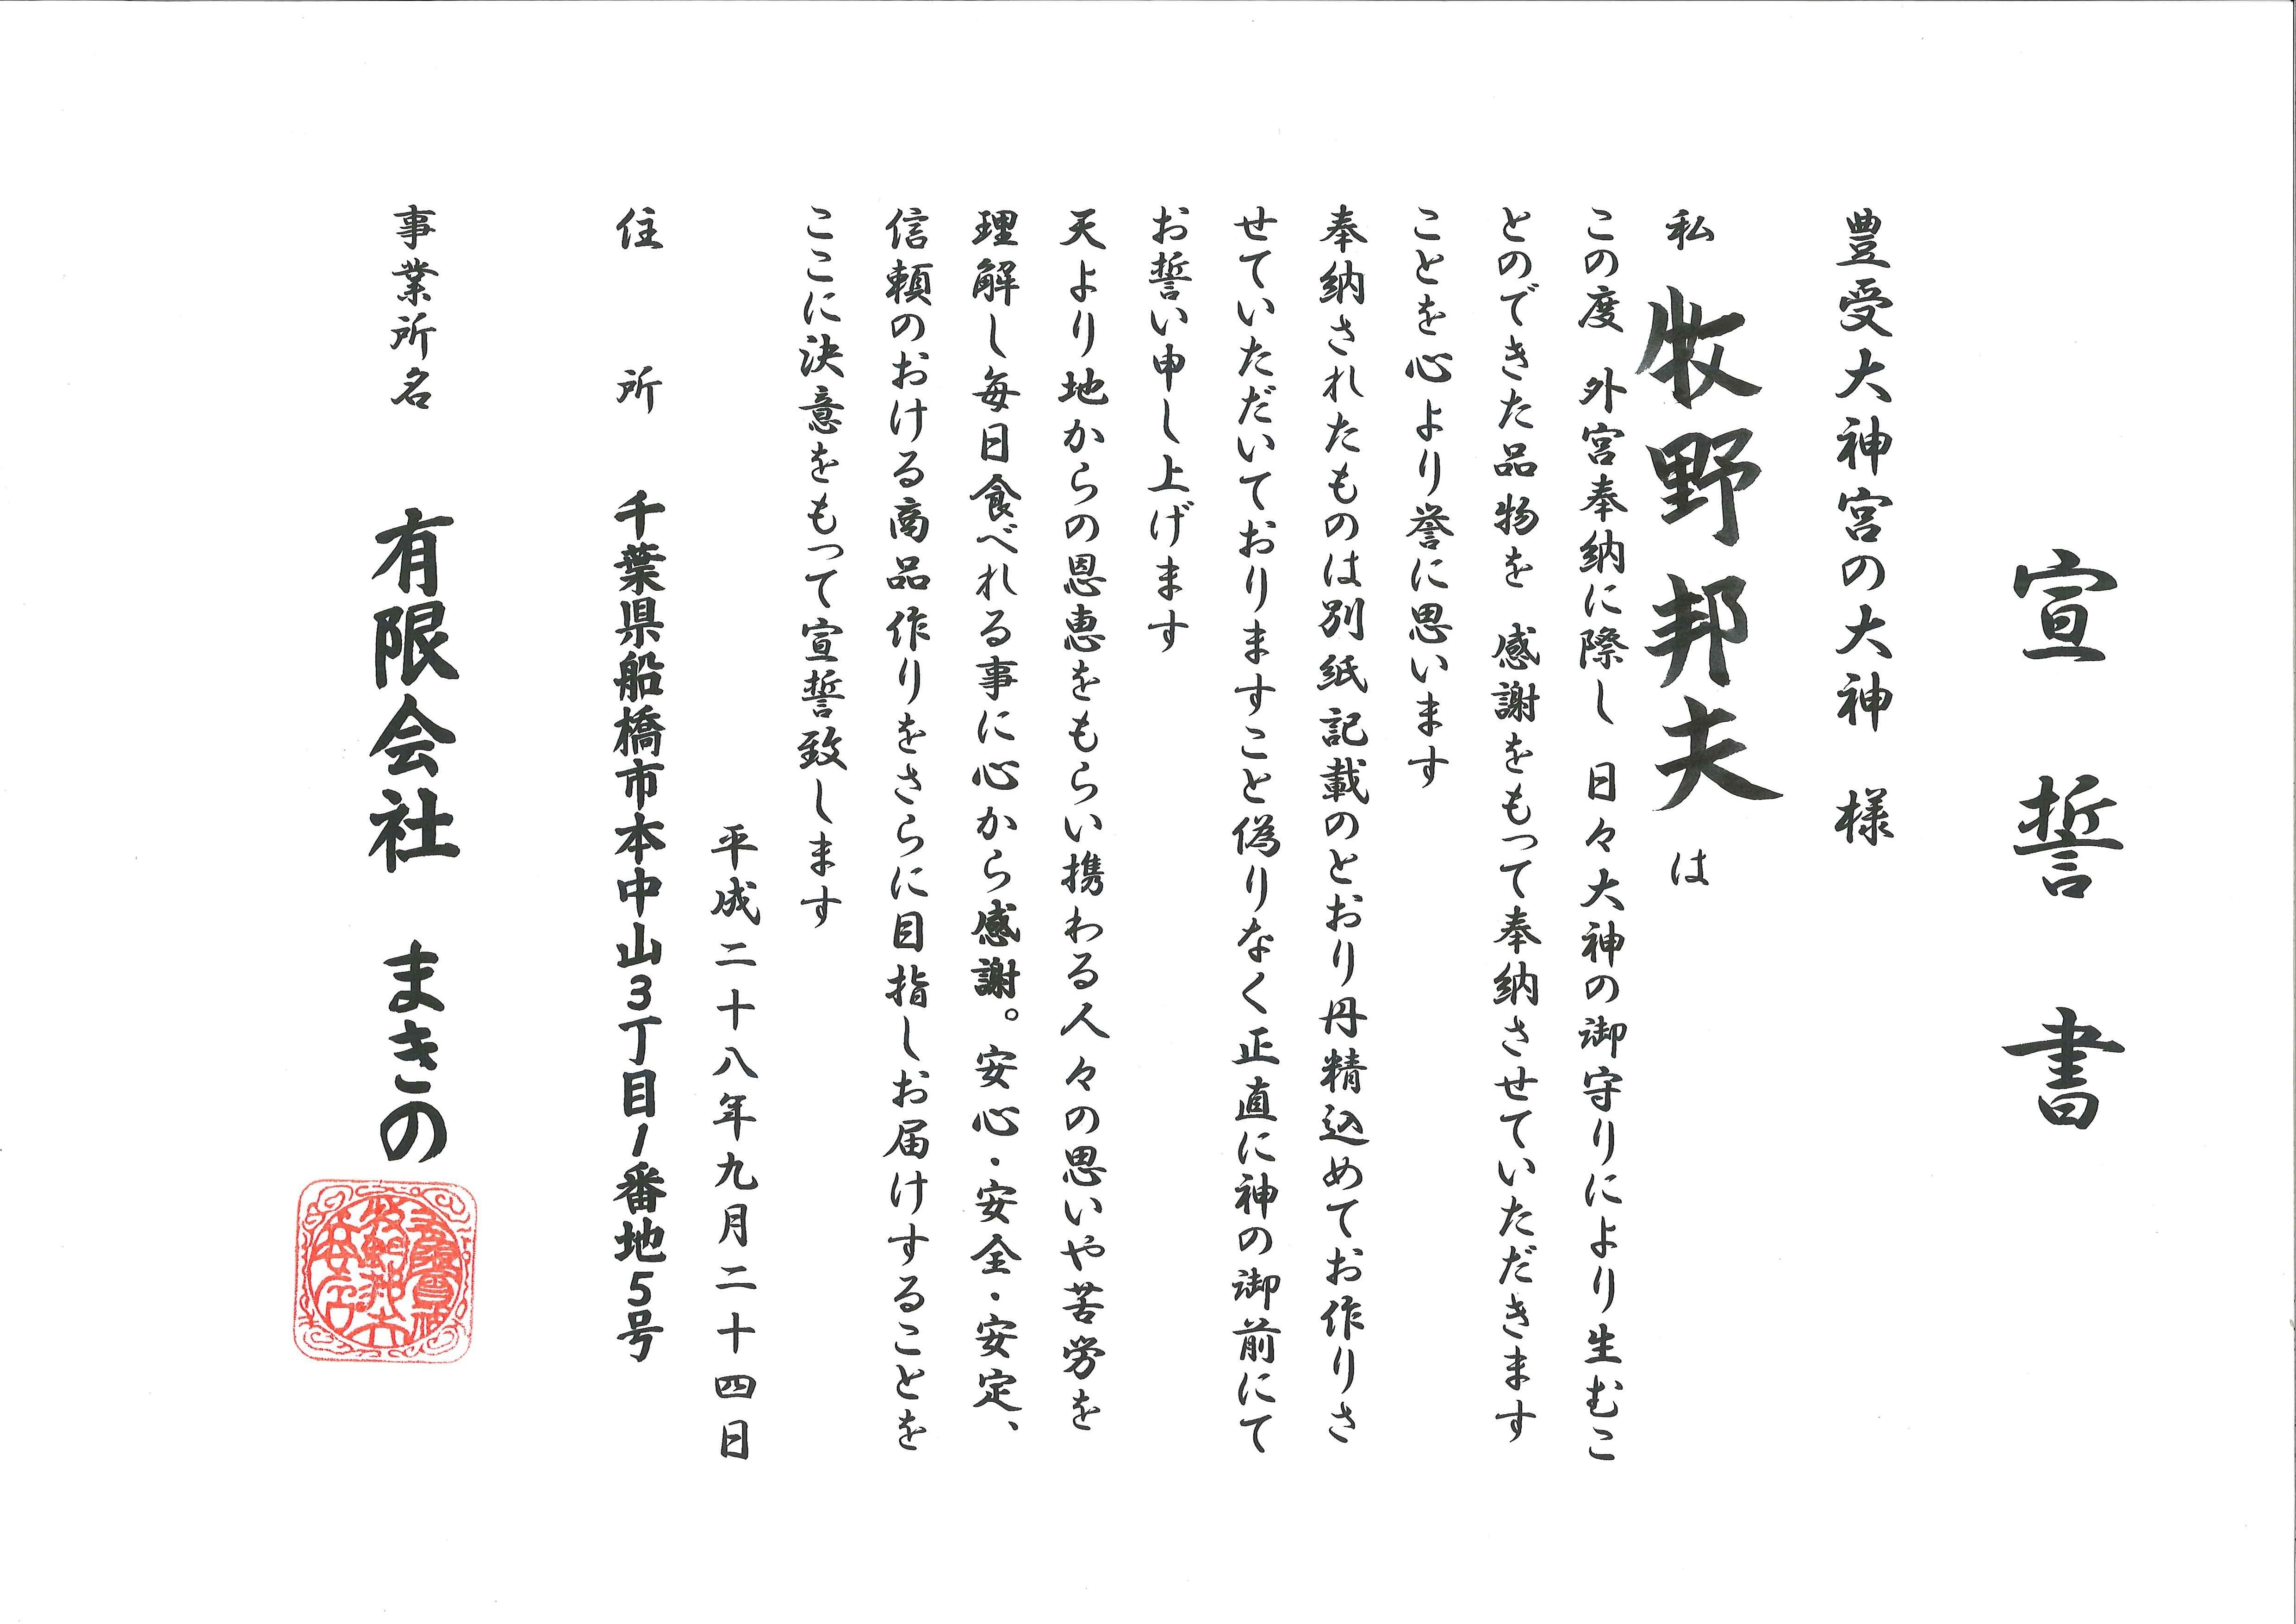 宣誓書
豊受大神宮の大神 様
私 牧野邦夫 は
この度 外宮奉納に際し 日々大神の御守りにより生むこ
とのできた品物を 感謝をもって奉納させていただきます
ことを心より誉に思います
奉納されたものは別紙記載のとおり丹精込めてお作りさ
せていただいておりますこと偽りなく正直に神の御前にて
お誓い申し上げます
天より地からの恩恵をもらい携わる人々の思いや苦労を
理解し毎日食べれる事に心から感謝。安心・安全・安定、
信頼のおける商品作りをさらに目指しお届けすることを
ここに決意をもって宣誓致します
平成二十八年九月二十四日
住所 千葉県船橋市本中山3丁目1番地5号
事業所名 有限会社 まきの